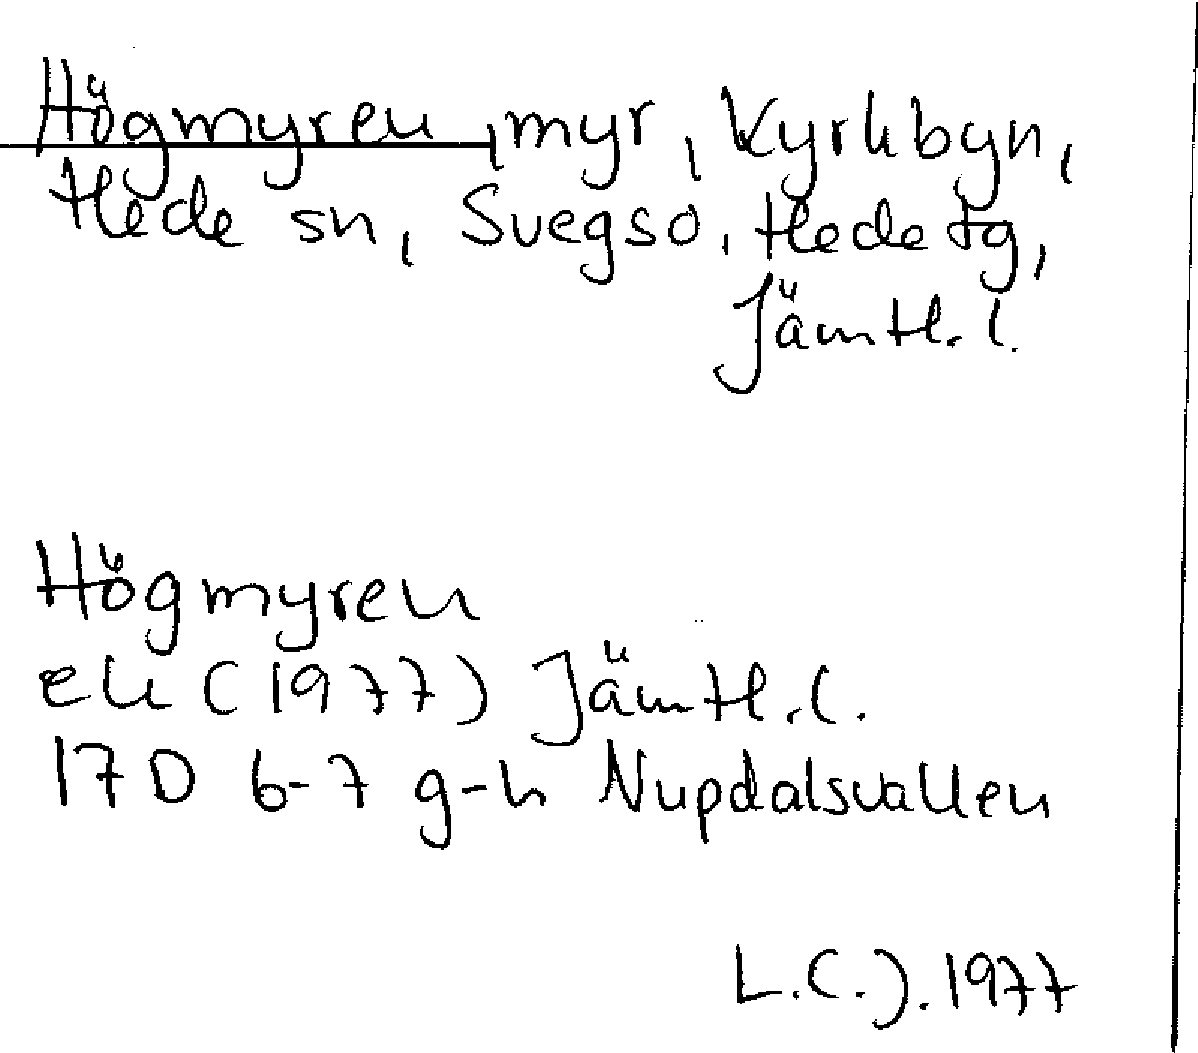 Högmyren, myr, Kyrkbyn,
Hede sn, Svegso, Hede tg,
Jämtl. l.
Högmyren
ek (1977) Jämtl. l.
17 D 6-7 g-h Nupdalsvallen
L.C.J. 1977